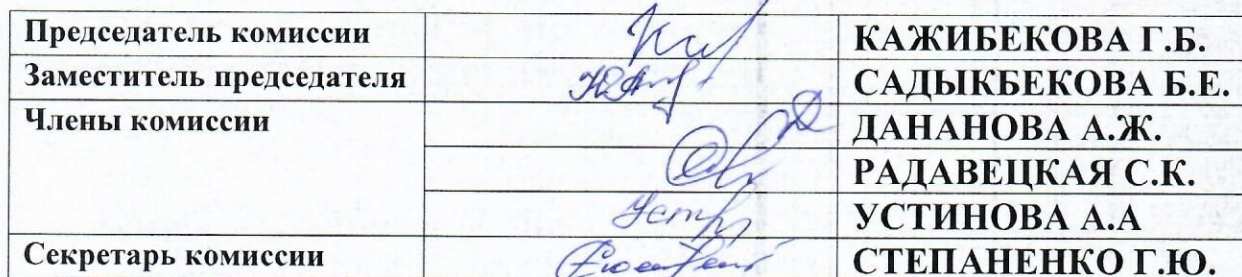 Председатель комиссии КАЖИБЕКОВА Г.Б.
Заместитель председателя САДЫКБЕКОВА Б.Е.
Члены комиссии ДАНАНОВА А.Ж.
РАДАВЕЦКАЯ С.К.
УСТИНОВА А.А
Секретарь комиссии СТЕПАНЕНКО Г.Ю.